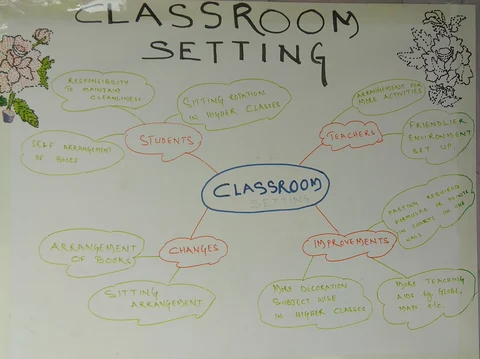 CLASSROOM
SETTING
RESPONSIBILITY
TO MAINTAIN
CLEANLINESS
SITTING ROTATION
IN HIGHER CLASSES
SELF ARRANGEMENT
OF BOOKS
STUDENTS
ARRANGEMENT FOR
MORE ACTIVITIES
TEACHERS
FRIENDLIER
ENVIRONMENT
SET UP
CLASSROOM
SETTING
PASTING REQUIRED
FORMULAS OR POINTS
IN CHARTS IN THE
CHANGES
ARRANGEMENT
OF BOOKS
SITTING
ARRANGEMENT
IMPROVEMENTS
MORE DECORATION
SUBJECT WISE
IN HIGHER CLASSES
MORE TEACHING
AIDS eg GLOBE,
MAPS etc.